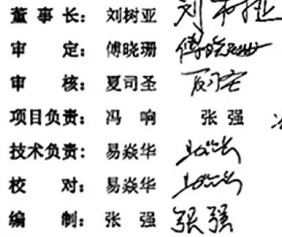 董 事 长： 刘树亚 刘树亚
审 定： 傅晓珊 傅晓珊
审 核： 夏司圣
项目负责： 冯 响 张 强
技术负责： 易焱华
校 对： 易焱华
编 制： 张 强 张强